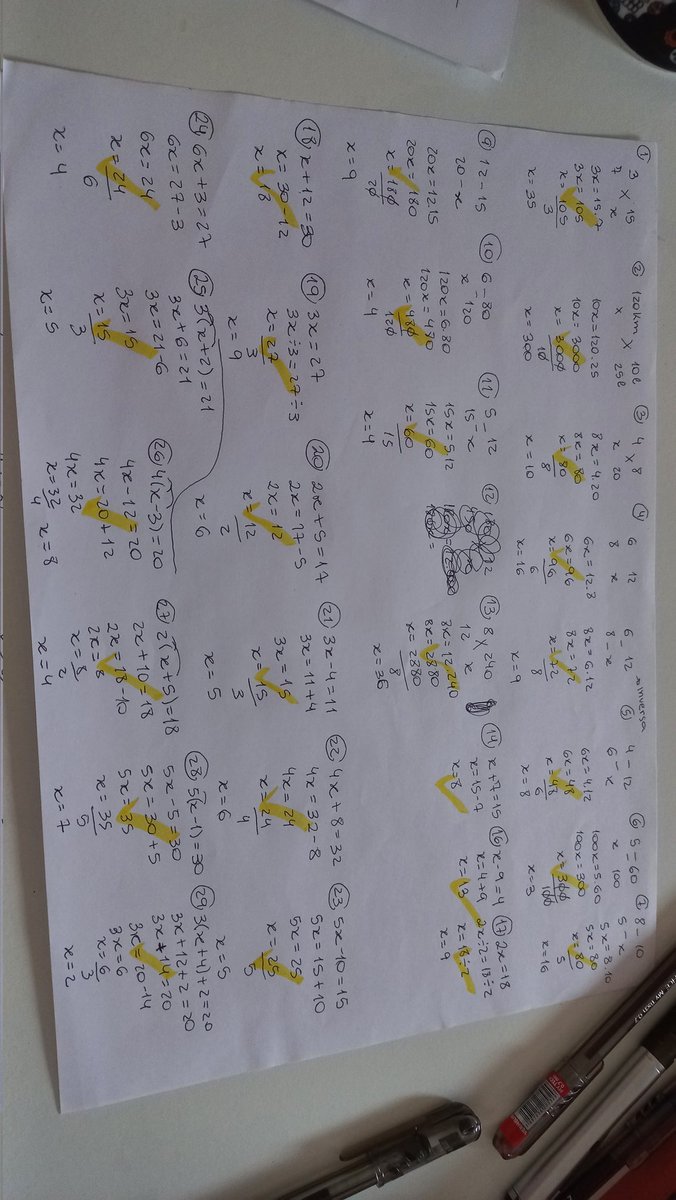 ① 3 × 15
7 x
3x = 15.7
3x = 105
x = 105
3
x = 35
② 120km × 10l
x 25l
10x = 120.25
10x = 3000
x = 3000
10
x = 300
③ 4 × 8
x 20
8x = 4.20
8x = 80
x = 80
8
x = 10
④ 6 12
8 x
6x = 12.8
6x = 96
x = 96
6
x = 16
6 - 12 inversa
8 - x
8x = 6.12
8x = 72
x = 72
8
x = 9
⑤ 4 - 12
6 - x
6x = 4.12
6x = 48
x = 48
6
x = 8
⑥ 5 - 60
x 100
100x = 5.60
100x = 300
x = 300
100
x = 3
8 - 10
5 - x
5x = 8.10
5x = 80
x = 80
5
x = 16
⑨ 12 - 15
20 - x
20x = 12.15
20x = 180
x = 180
20
x = 9
⑩ 6 - 80
x 120
120x = 6.80
120x = 480
x = 480
120
x = 4
⑪ 5 - 12
15 - x
15x = 5.12
15x = 60
x = 60
15
x = 4
⑫
⑬ 8 × 240
12 x
8x = 12.240
8x = 2880
x = 2880
8
x = 36
⑭ x + 7 = 15
x = 15 - 7
x = 8
⑯ x - 9 = 4
x = 4 + 9
x = 13
⑰ 2x = 18
2x ÷ 2 = 18 ÷ 2
x = 18 ÷ 2
x = 9
⑱ x + 12 = 30
x = 30 - 12
x = 18
⑲ 3x = 27
3x ÷ 3 = 27 ÷ 3
x = 27
3
x = 9
⑳ 2x + 5 = 17
2x = 17 - 5
2x = 12
x = 12
2
x = 6
㉑ 3x - 4 = 11
3x = 11 + 4
3x = 15
x = 15
3
x = 5
㉒ 4x + 8 = 32
4x = 32 - 8
4x = 24
x = 24
4
x = 6
㉓ 5x - 10 = 15
5x = 15 + 10
5x = 25
x = 25
5
x = 5
㉔ 6x + 3 = 27
6x = 27 - 3
6x = 24
x = 24
6
x = 4
㉕ 3(x + 2) = 21
3x + 6 = 21
3x = 21 - 6
3x = 15
x = 15
3
x = 5
㉖ 4(x - 3) = 20
4x - 12 = 20
4x = 20 + 12
4x = 32
x = 32
4
x = 8
㉗ 2(x + 5) = 18
2x + 10 = 18
2x = 18 - 10
2x = 8
x = 8
2
x = 4
㉘ 5(x - 1) = 30
5x - 5 = 30
5x = 30 + 5
5x = 35
x = 35
5
x = 7
㉙ 3(x + 4) + 2 = 20
3x + 12 + 2 = 20
3x + 14 = 20
3x = 20 - 14
3x = 6
x = 6
3
x = 2